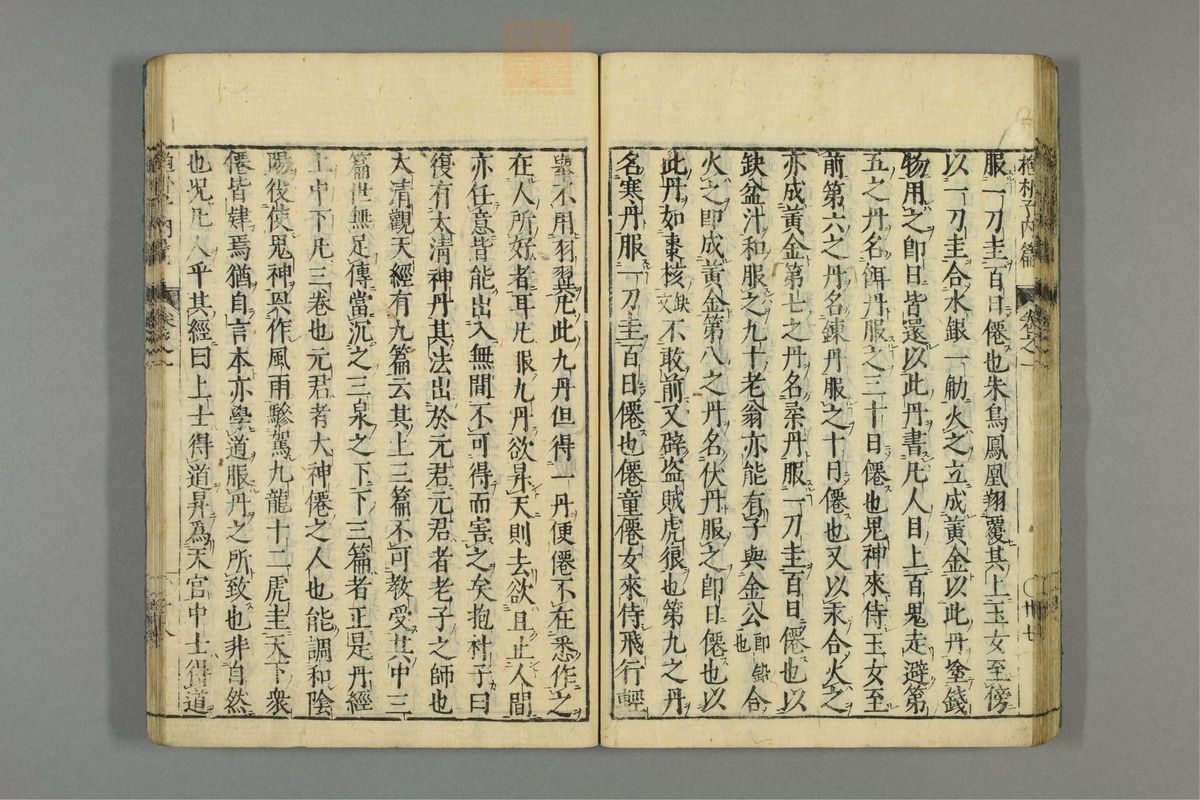 抱朴子内篇 卷之一 廿七
服一刀圭百日僊也朱鳥鳳凰翔覆其上玉女至傍
以一刀圭合水銀一觔火之立成黃金以此丹塗錢
物用之卽日皆還以此丹書凡人目上百鬼走避第
五之丹名餌丹服之三十日僊也鬼神來侍玉女至
前第六之丹名鍊丹服之十日僊也又以汞合火之
亦成黃金第七之丹名柔丹服一刀圭百日僊也以
缺盆汁和服之九十老翁亦能有子與金公卽鉛也合
火之卽成黃金第八之丹名伏丹服之卽日僊也以
此丹如棗核缺文不敢前又辟盜賊虎狼也第九之丹
名寒丹服一刀圭百日僊也僊童僊女來侍飛行輕
舉不用羽翼凡此九丹但得一丹便僊不在悉作之
在人所好者耳凡服九丹欲昇天則去欲且止人間
亦任意皆能出入無間不可得而害之矣抱朴子曰
復有太清神丹其法出於元君元君者老子之師也
太清觀天經有九篇云其上三篇不可教受其中三
篇世無足傳當沉之三泉之下下三篇者正是丹經
上中下凡三卷也元君者大神僊之人也能調和陰
陽役使鬼神風作風雨驂駕九龍十二虎圭天下衆
僊皆肄焉猶自言本亦學道服丹之所致也非自然
也况凡人乎其經曰上士得道昇爲天官中士得道